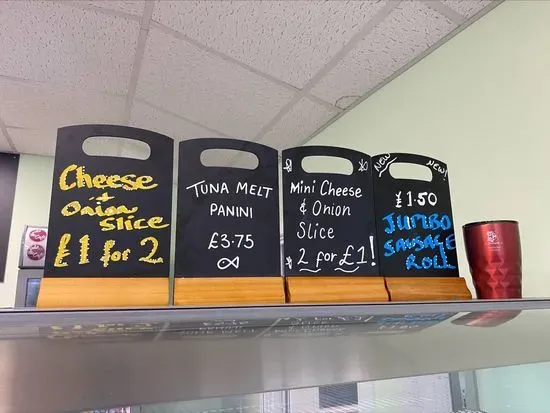 Cheese
+
Onion
Slice
£1 for 2
TUNA MELT
PANINI
£3.75
Mini Cheese
& Onion
Slice
2 for £1!
NEW
NEW!
£1.50
JUMBO
SAUSAGE
ROLL